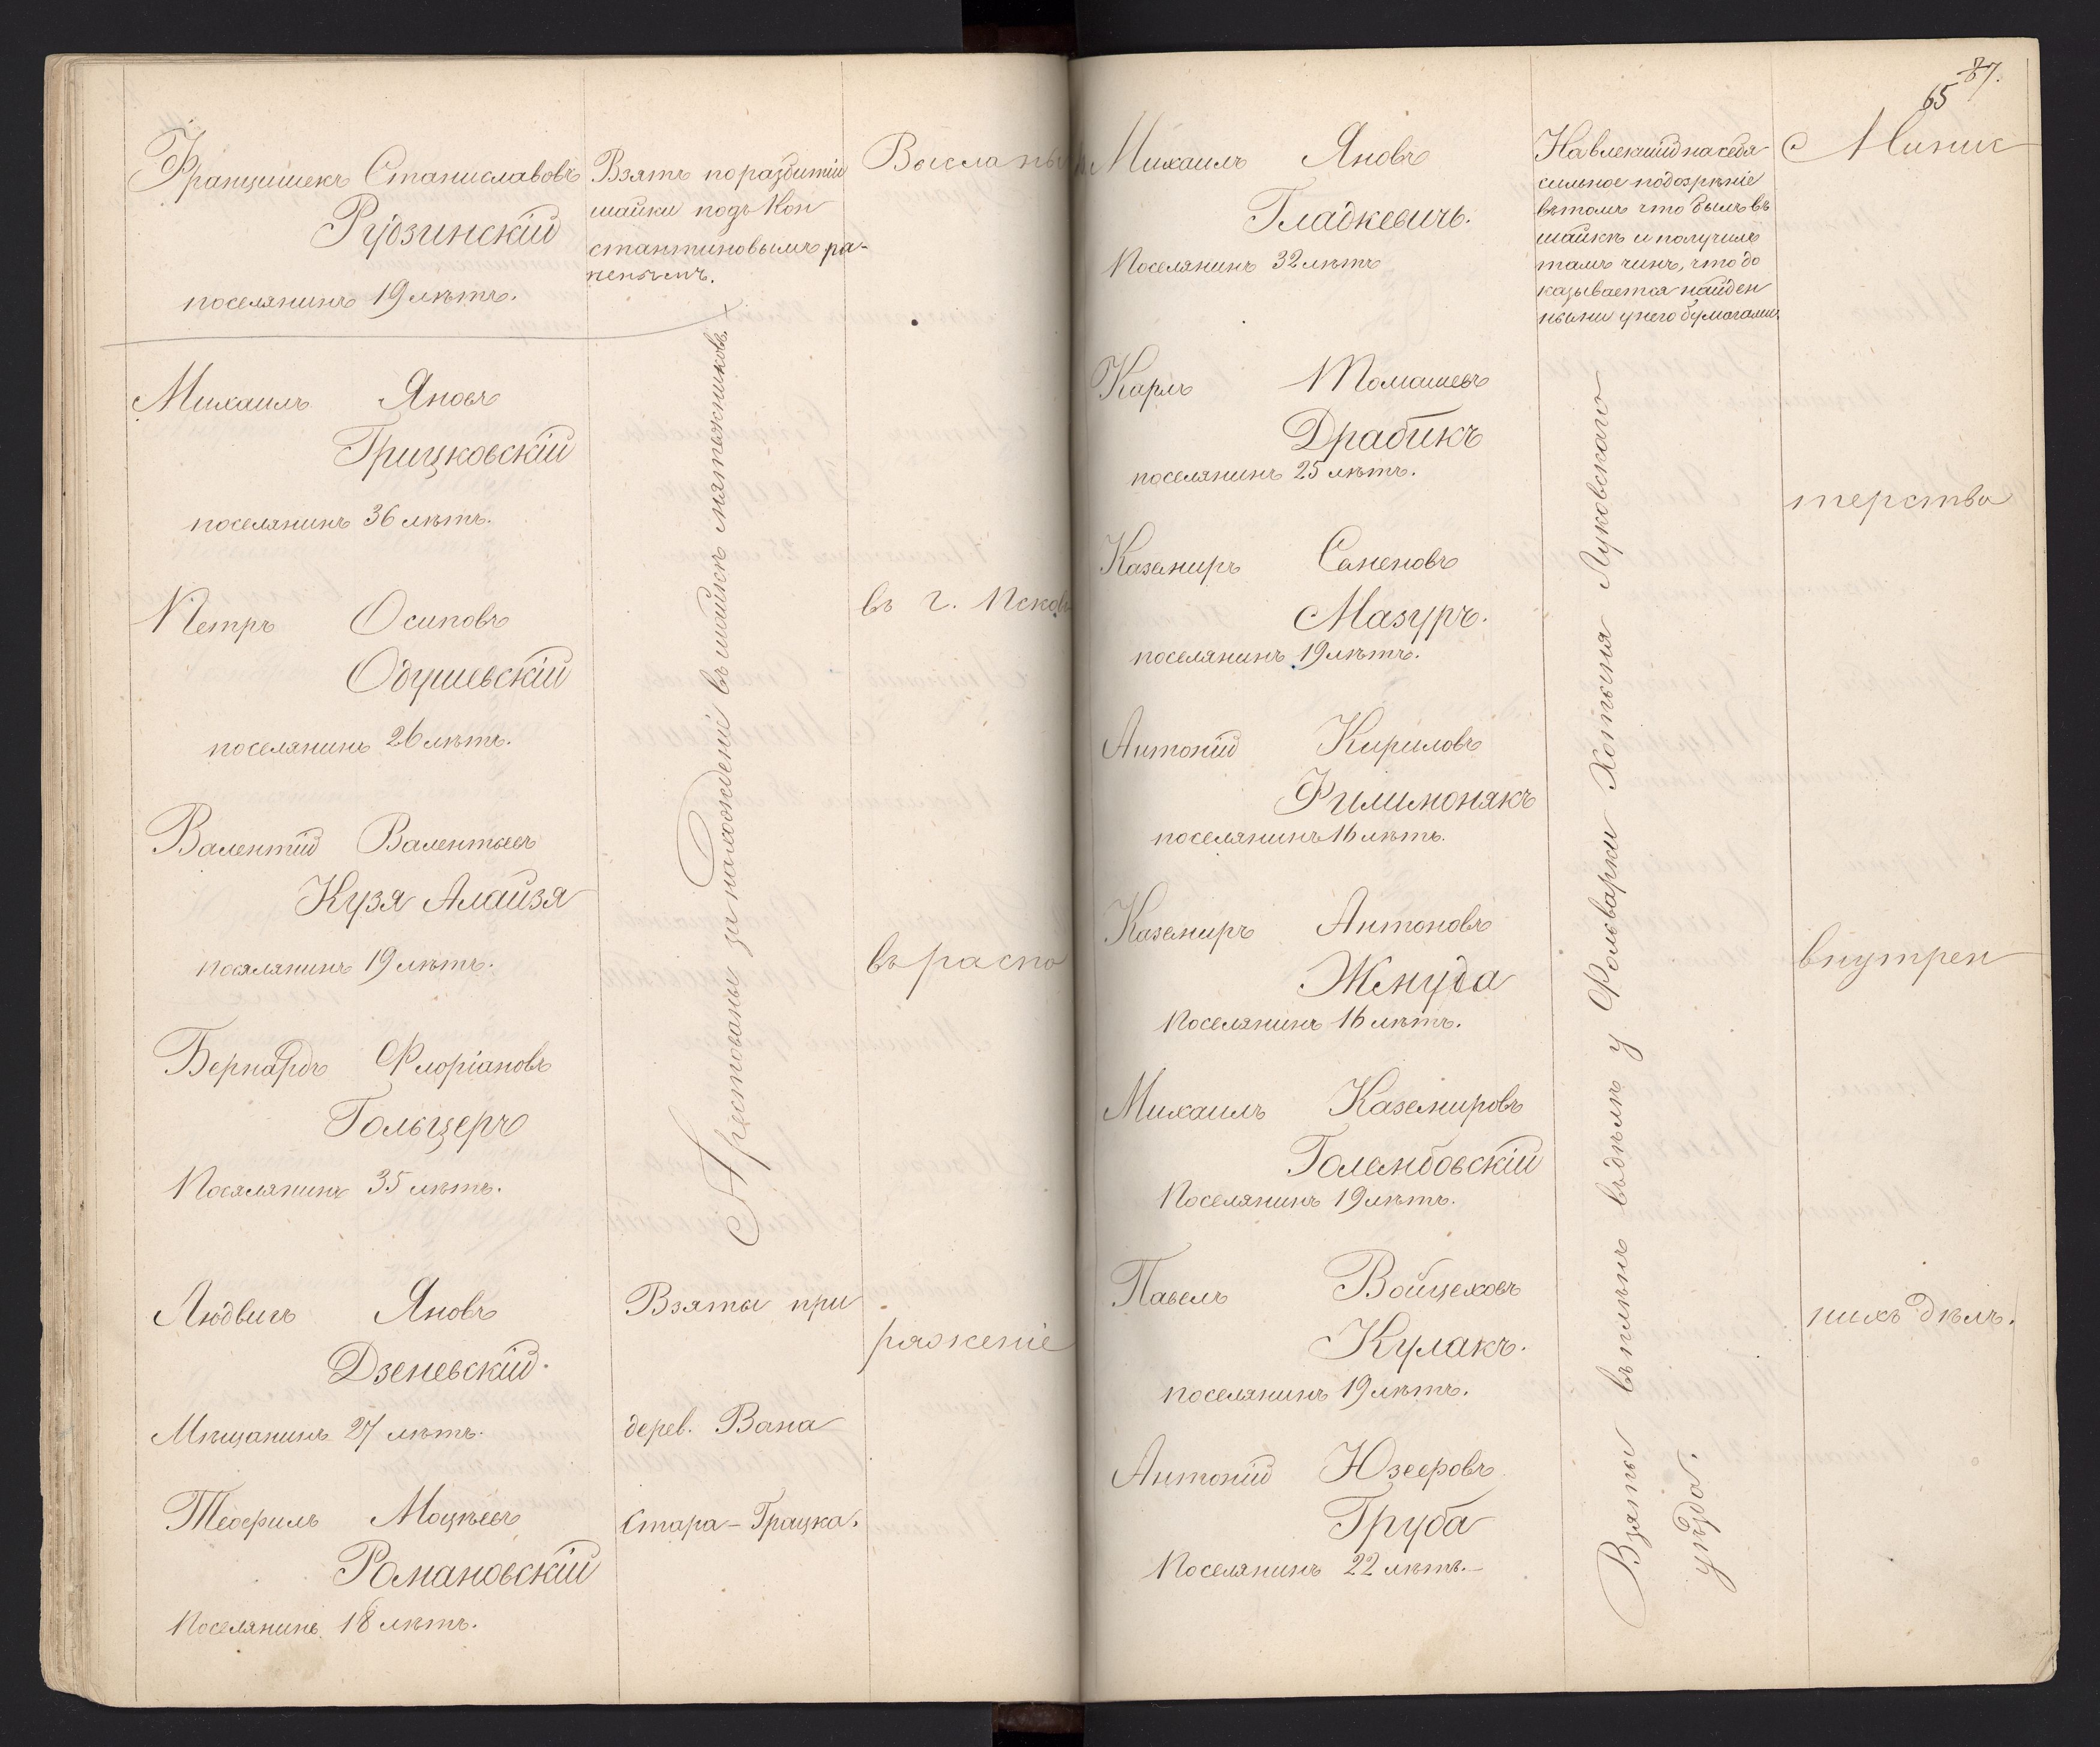 Францишекъ Станиславовъ
Рудзинскій
поселянинъ 19 лѣтъ.
Взятъ по разбитіи
шайки подъ Кон
стантиновымъ ра-
ненымъ.
Михаилъ Яновъ
Грицковскій
поселянинъ 36 лѣтъ.
Петръ Осиповъ
Одушевскій
поселянинъ 26 лѣтъ.
Валентій Валентьевъ
Кузя Алайзя
посялянинъ 19 лѣтъ.
Бернардъ Флоріановъ
Гольцеръ
Посялянинъ 35 лѣтъ.
Арестованы за нахожденіе въ шайкѣ мятежниковъ
Людвигъ Яновъ
Дзеневскій.
Мѣщанинъ 27 лѣтъ.
Теофиль Моцѣевъ
Романовскій
Поселянинъ 18 лѣтъ.
Взяты при
дерев. Вана
Стара-Грацка.
Высланы
въ г. Псковъ
въ распо
ряженіе
87.
65
Михаилъ Яновъ
Гладкевичъ.
Поселянинъ 32 лѣтъ
Навлекшій на себя
сильное подозрѣніе
въ томъ что былъ въ
шайкѣ и получилъ
тамъ чинъ, что до
казывается найден
ными у него бумагами.
Карлъ Томашевъ
Драбикъ
поселянинъ 25 лѣтъ.
Каземиръ Семеновъ
Мазуръ.
поселянинъ 19 лѣтъ.
Антоній Кириловъ
Филимонякъ
поселянинъ 16 лѣтъ.
Каземиръ Антоновъ
Жмуда
Поселянинъ 16 лѣтъ.
Михаилъ Каземировъ
Голембовскій
Поселянинъ 19 лѣтъ.
Павелъ Войцеховъ
Кулакъ.
поселянинъ 19 лѣтъ.
Антоній Юзефовъ
Груба
Поселянинъ 22 лѣтъ.-
Взяты въ плѣнъ въ дѣлѣ у Фольварки Хотыня Луковскаго
уѣзда.
Минис
терства
внутрен
нихъ дѣлъ.